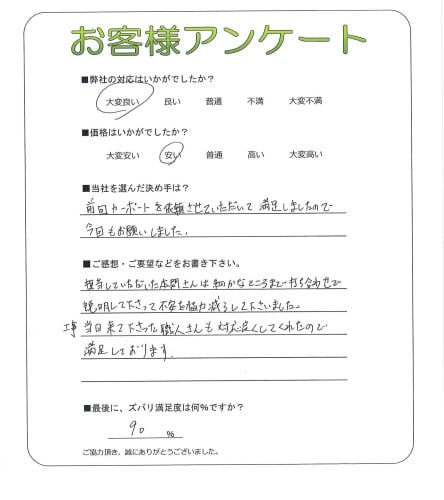 お客様アンケート
■弊社の対応はいかがでしたか？
大変良い 良い 普通 不満 大変不満
■価格はいかがでしたか？
大変安い 安い 普通 高い 大変高い
■当社を選んだ決め手は？
前回カーポートを依頼させていただいて満足しましたので
今回もお願いしました。
■ご感想・ご要望などをお書き下さい。
担当していただいた本間さんは細かなところまで打ち合わせで
説明して下さって不安を極力減らして下さいました。
工事当日来て下さった職人さんも対応良くしてくれたので
満足しております。
■最後に、ズバリ満足度は何％ですか？
90 %
ご協力頂き、誠にありがとうございました。